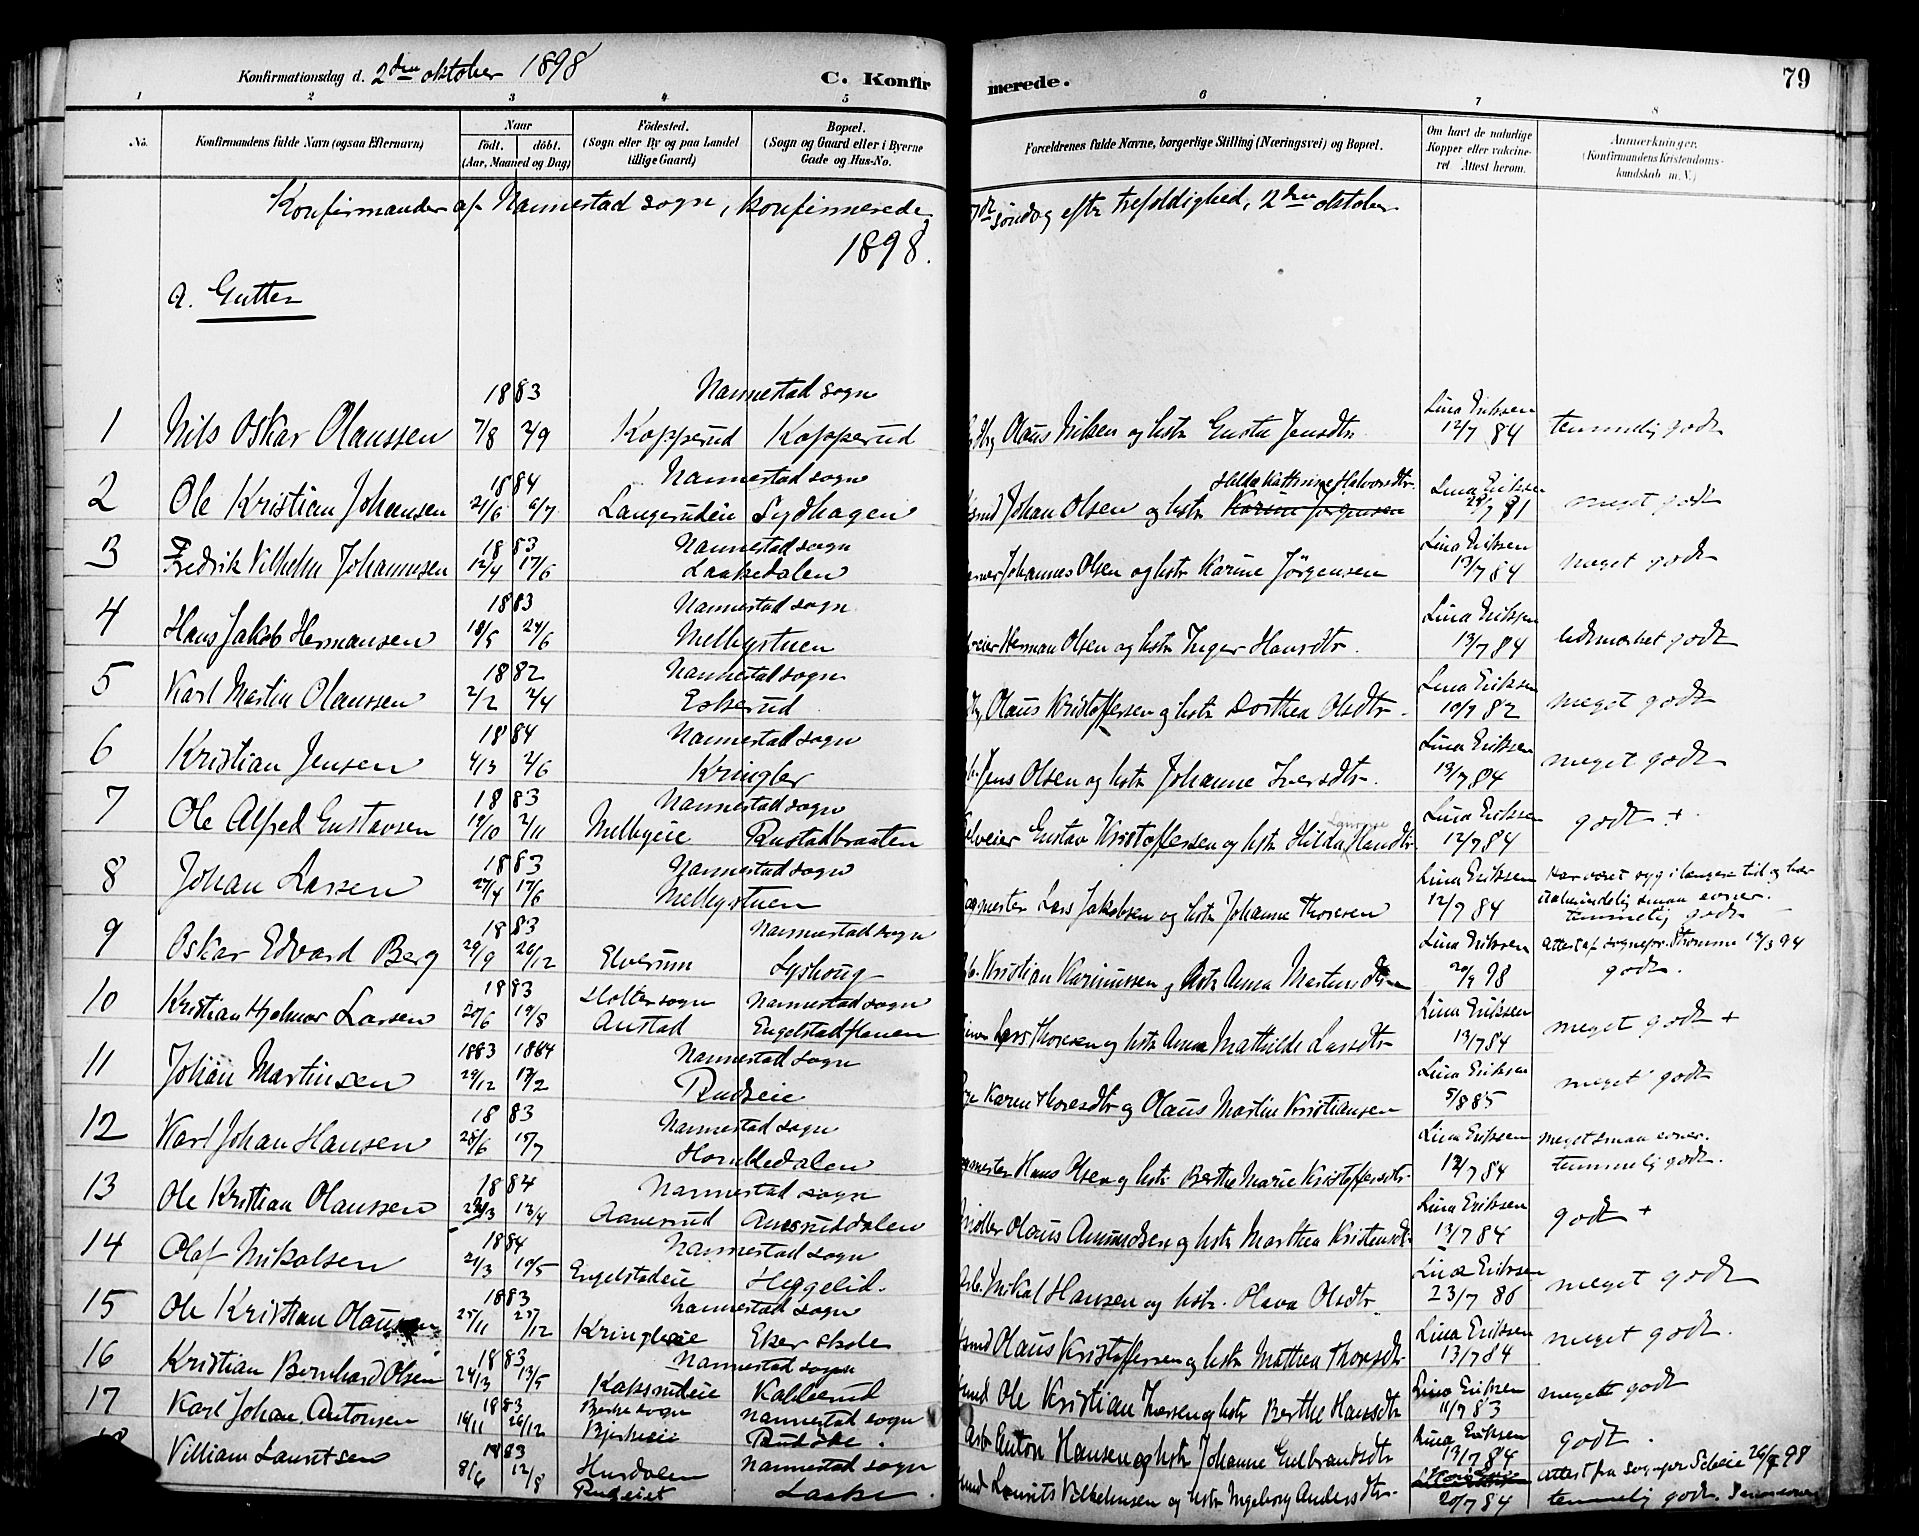 Konfirmationsdag d. 2den oktober 1898
C. Konfirmerede.
79
1 2 3 4 5 6 7 8
No.
Konfirmandens fulde Navn (ogsaa Efternavn)
Naar
födt. döbt.
(Aar, Maaned og Dag)
Födested.
(Sogn eller By og paa Landet
tillige Gaard)
Bopæl.
(Sogn og Gaard eller i Byerne
Gade og Hus-No.
Forældrenes fulde Navne, borgerlige Stilling (Næringsvei) og Bopæl.
Om havt de naturlige
Kopper eller vakcine-
ret Attest herom.
Anmerkninger.
(Konfirmandens Kristendoms-
kundskab m. V.)
Konfirmander af Nannestad sogn, konfirmerede
söndag efter trefoldighed, 2den oktober
1898.
a. Gutter
1883 Nannestad sogn
1 Nils Oskar Olaussen 7/8 2/9 Kopperud Kopperud Olaus Nilsen og hstr Gustu Jensdtr. Lina Eriksen 12/7 84 temmelig godt
1884 Nannestad sogn
2 Ole Kristian Johansen 21/6 6/7 Langerudeie Sydhagen Johan Olsen og hstr Karine Jörgensen Hilda Kathrine Halvorsdtr. Lina Eriksen meget godt
1883 Nannestad sogn
3 Fredrik Vilhelm Johannesen 12/4 17/6 Laakedalen Johannes Olsen og hstr Karine Jörgensen Lina Eriksen 13/7 84 meget godt
1883 Nannestad sogn
4 Hans Jakob Hermansen 18/5 24/6 Melbystuen Herman Olsen og hstr Inger Hansdtr. Lina Eriksen 13/7 84 udmærket godt
1882 Nannestad sogn
5 Karl Martin Olaussen 2/2 2/4 Eskerud Olaus Kristoffersen og hstr Dorthea Olsdtr. Lina Eriksen 10/7 82 meget godt
1884 Nannestad sogn
6 Kristian Jensen 4/3 2/6 Kringler Jens Olsen og hstr Johanne Iversdtr. Lina Eriksen 13/7 84 meget godt
1883 Nannestad sogn
7 Ole Alfred Gustavsen 19/10 2/11 Melbyeie Rustadbraaten Gustav Kristoffersen og hstr Hilda Hansdtr. Lina Eriksen 12/7 84 godt +
1883 Nannestad sogn
8 Johan Larsen 27/4 17/6 Melbystuen Lars Jakobsen og hstr Johanne Thoresen Lina Eriksen 12/7 84 Har været syg i længere tid og har
ualmindelig smaa evner.
temmelig godt
1883 Nannestad sogn
9 Oskar Edvard Berg 29/9 26/12 Elverum Lyshoug Kristian Rasmussen og hstr Anna Martinsdtr Lina Eriksen 20/9 98 Attest af sognepr. Thomme 14/3 94
godt.
1883 Holter sogn Nannestad sogn
10 Kristian Hjalmar Larsen 20/6 19/8 Austad Engelstadflauen Lars Thoresen og hstr Anna Mathilde Larsdtr Lina Eriksen 13/7 84 meget godt +
1883 1884 Nannestad sogn
11 Johan Martinsen 29/12 17/2 Rudseie Karen Thoresdtr og Olaus Martin Kristiansen Lina Eriksen 5/8 85 meget godt
1883 Nannestad sogn
12 Karl Johan Hansen 28/6 15/7 Hornkedalen Hans Olsen og hstr Berthe Marie Kristoffersdtr. Lina Eriksen 12/7 84 meget smaa evner.
temmelig godt.
1884 Nannestad sogn
13 Ole Kristian Olaussen 23/3 13/4 Aamerud Amrruddalen Olaus Amundsen og hstr Marthea Kristensdtr. Lina Eriksen 13/7 84 godt +
1884 Nannestad sogn
14 Olaf Mikalsen 21/3 10/5 Engelstadeie Heggelid. Arb. Mikal Hansen og hstr. Olava Olsdtr. Lina Eriksen 23/7 86 meget godt
1883 Nannestad sogn
15 Ole Kristian Olaussen 25/11 27/12 Kringlereie Eker skole Olaus Kristoffersen og hstr Mathea Thoresdtr Lina Eriksen 13/7 84 meget godt.
1883 Nannestad sogn
16 Kristian Bernhard Olsen 24/3 13/5 Kokserudeie Kallerud Ole Kristian Iversen og hstr Berthe Hansdtr Lina Eriksen 11/7 83 meget godt
1883 Bjerke sogn Nannestad sogn
17 Karl Johan Antonsen 16/11 26/12 Bjerkeeie Arb. Anton Hansen og hstr Johanne Gulbrandsdtr Lina Eriksen 13/7 84 godt.
1883 Hurdalen Nannestad sogn
18 Villiam Lauritsen 8/6 12/8 Rudeiet Laake Laurits Vilhelmsen og hstr Ingeborg Andersdtr. 20/7 84 Attest fra sognepr Scheie 26/9 98
temmelig godt.